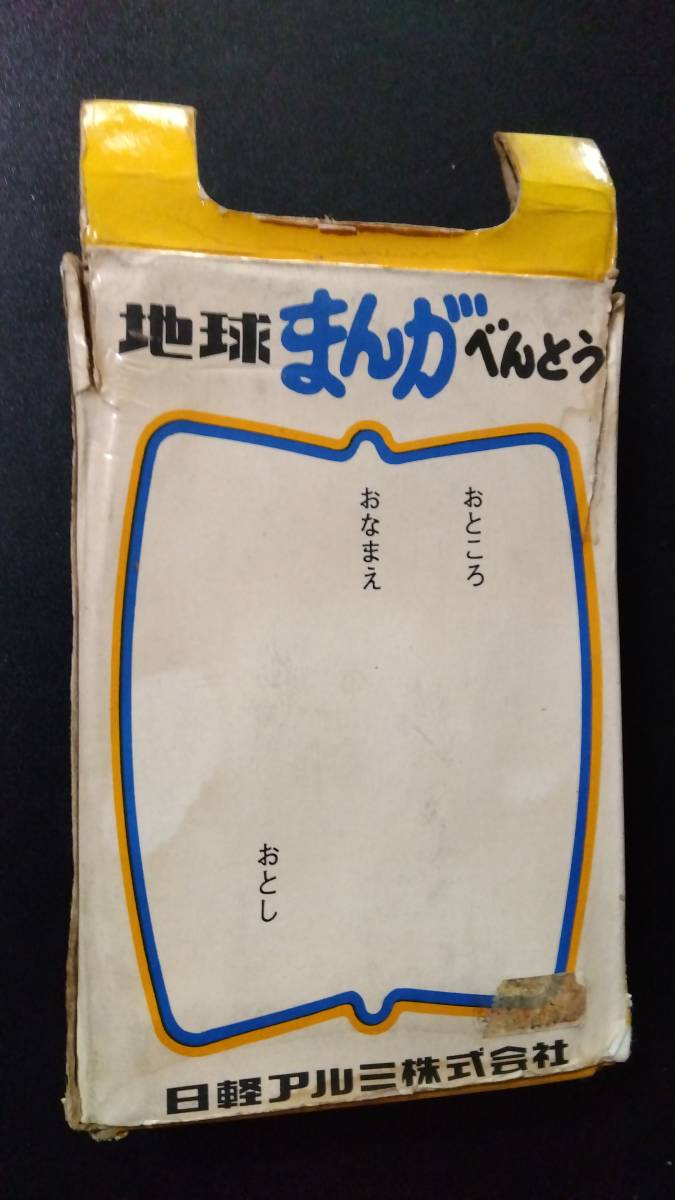 地球まんがべんとう
おところ
おなまえ
おとし
日軽アルミ株式会社